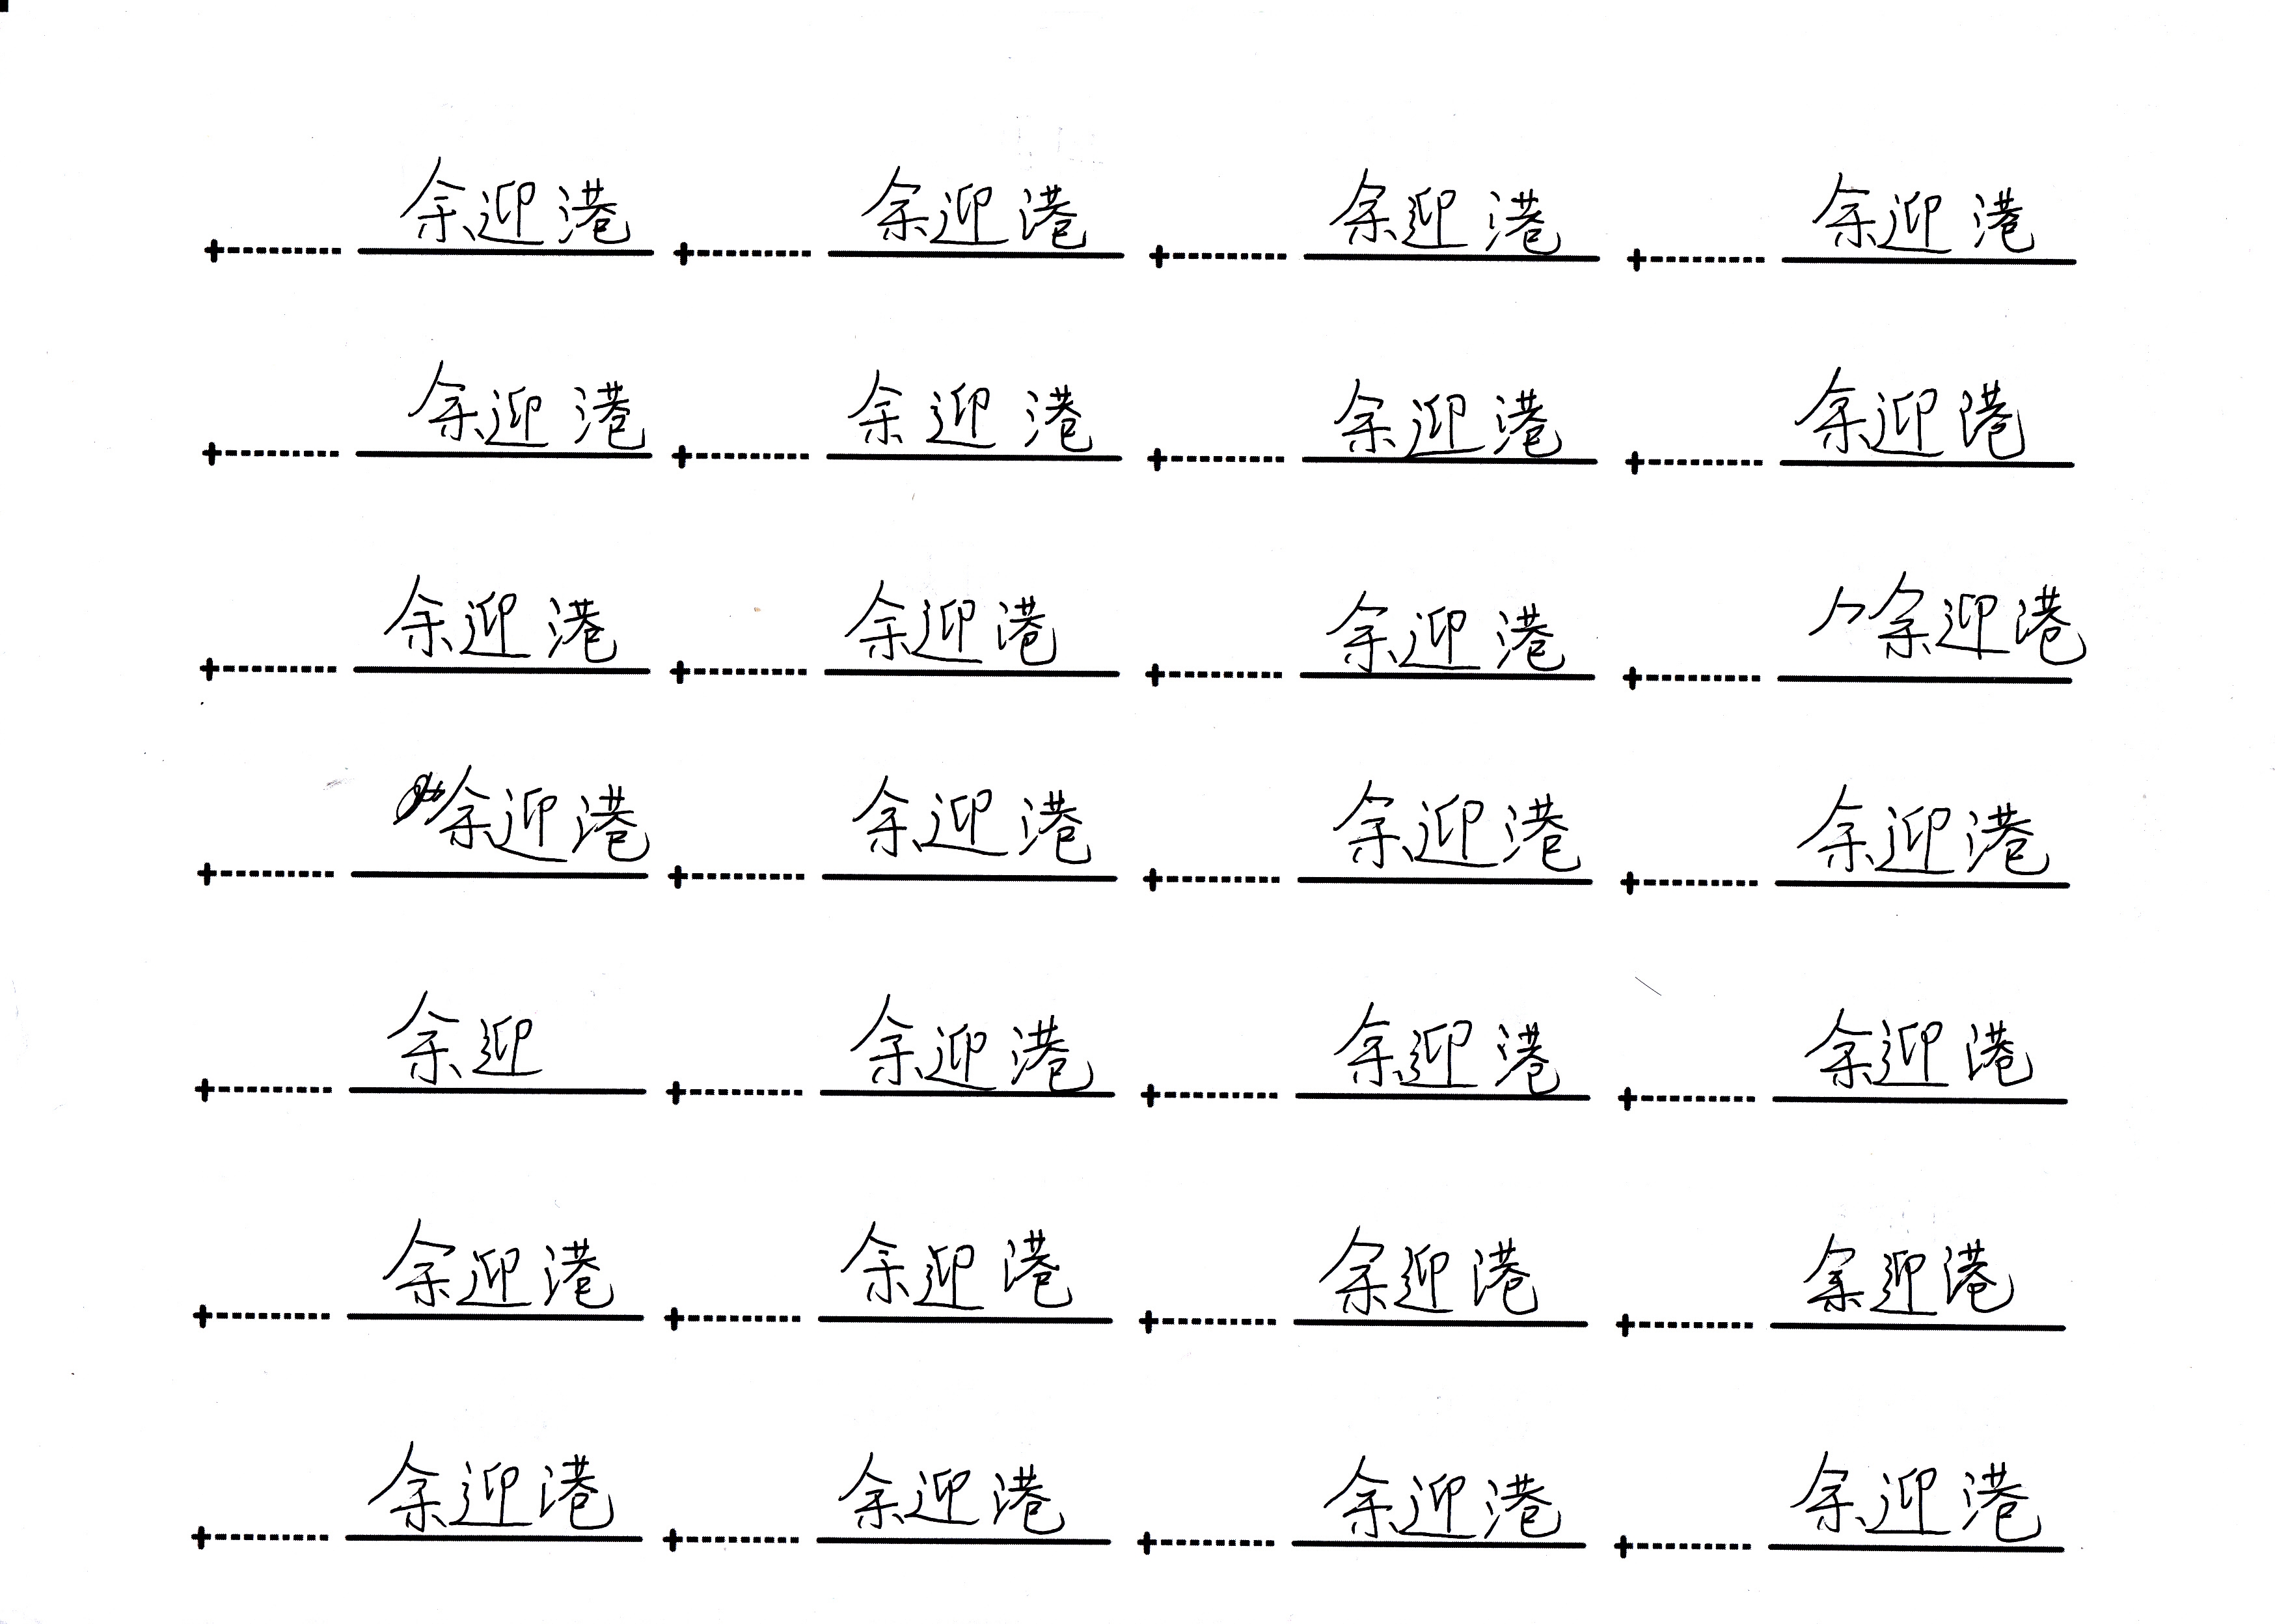 余迎港 余迎港 余迎港 余迎港
余迎港 余迎港 余迎港 余迎港
余迎港 余迎港 余迎港 余迎港
余迎港 余迎港 余迎港 余迎港
余迎 余迎港 余迎港 余迎港
余迎港 余迎港 余迎港 余迎港
余迎港 余迎港 余迎港 余迎港